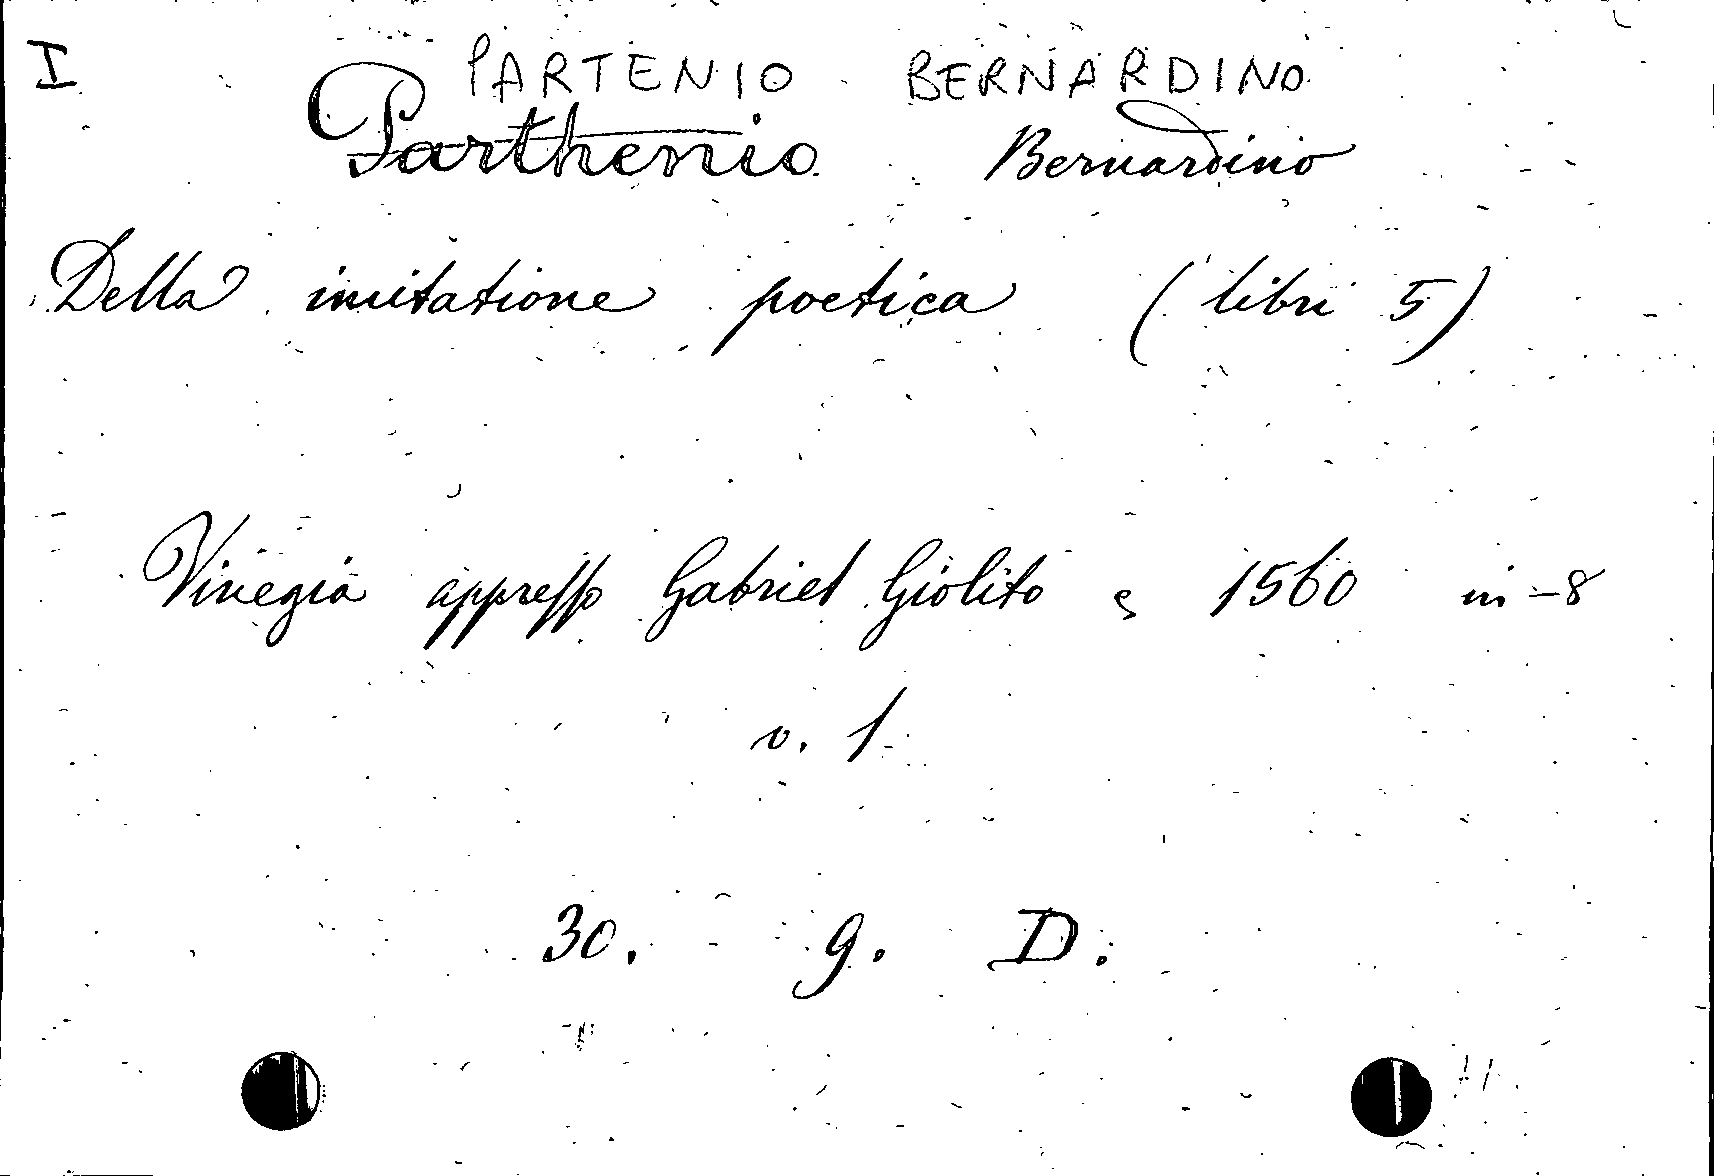 I PARTENIO BERNARDINO
Parthenio Bernardino
Della imitatione poetica (libri 5)
Vinegia appresso Gabriel Giolito 1560 in-8
v. 1
30. g. D.